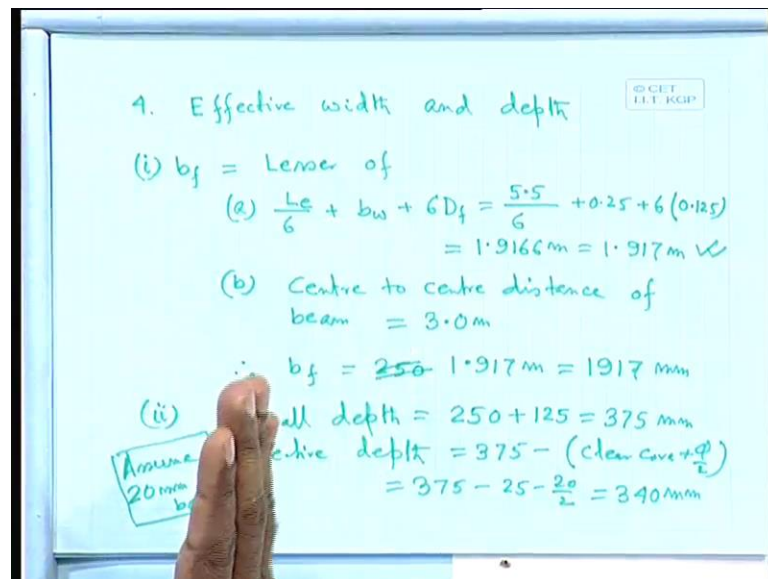 © CET
I.I.T. KGP
4. Effective width and depth
(i) bf = Lesser of
(a) Le/6 + bw + 6Df = 5.5/6 + 0.25 + 6(0.125)
= 1.9166 m = 1.917 m ✓
(b) Centre to centre distance of
beam = 3.0 m
∴ bf = 250 1.917 m = 1917 mm
(ii) all depth = 250 + 125 = 375 mm
ective depth = 375 - (Clear Cover + φ/2)
= 375 - 25 - 20/2 = 340 mm
Assume
20 mm